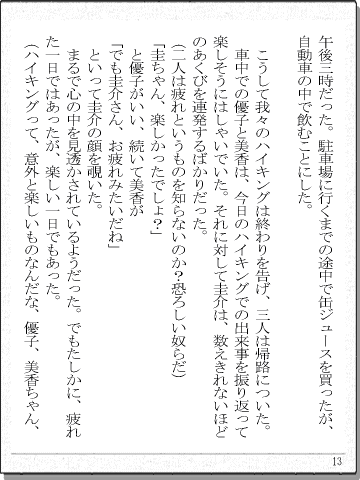 午後三時だった。駐車場に行くまでの途中で缶ジュースを買ったが、
自動車の中で飲むことにした。
こうして我々のハイキングは終わりを告げ、三人は帰路についた。
車中での優子と美香は、今日のハイキングでの出来事を振り返って
楽しそうにはしゃいでいた。それに対して圭介は、数えきれないほど
のあくびを連発するばかりだった。
（二人は疲れというものを知らないのか？恐ろしい奴らだ）
「圭ちゃん、楽しかったでしょ？」
と優子がいい、続いて美香が
「でも圭介さん、お疲れみたいだね」
といって圭介の顔を覗いた。
まるで心の中を見透かされているようだった。でもたしかに、疲れ
た一日ではあったが、楽しい一日でもあった。
（ハイキングって、意外と楽しいものなんだな、優子、美香ちゃん、
13